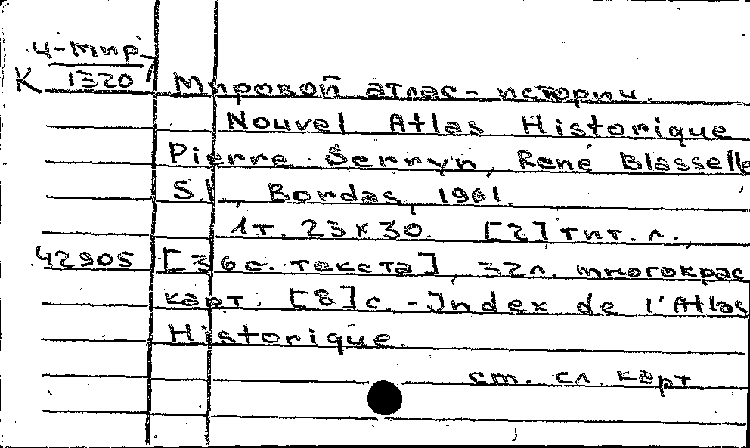 4-Мир
K 1320
Мировой атлас - истории.
Nouvel Atlas Historique
Pierre Sernyn, René Blasselle
S.l., Bordas, 1961.
1т. 23 x 30. [2] тит. л.,
42905 [36 с. текста], 32 л. многокрас
карт. [8] с. - Index de l'Atlas
Historique.
см. сл. карт